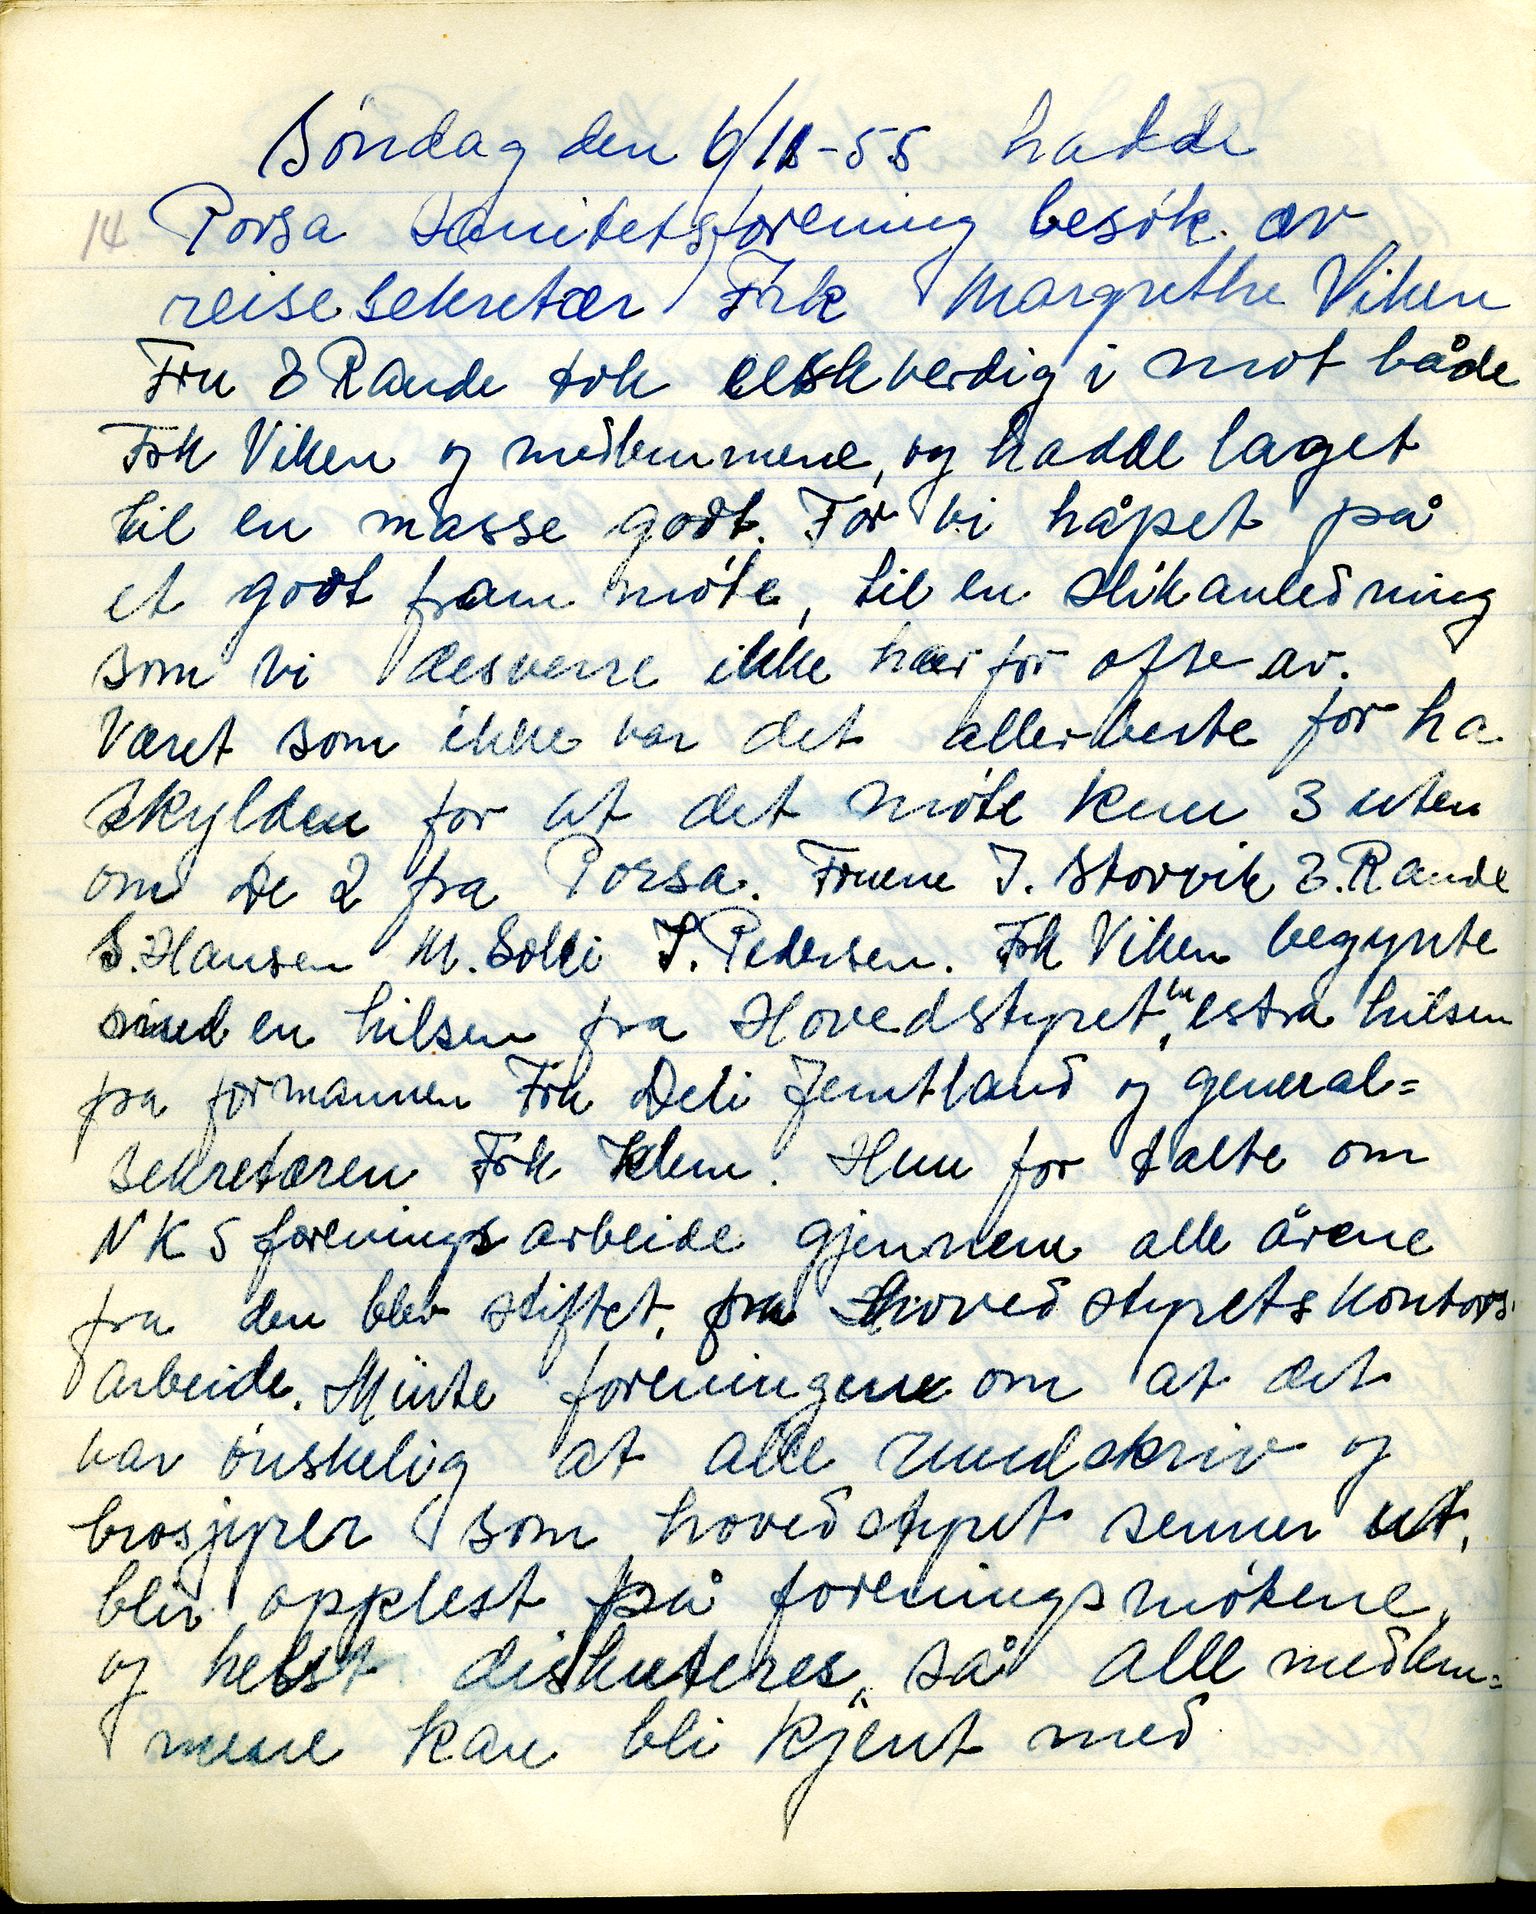 Söndag den 6/11-55 hadde
14 Porsa Sanitetsforening besök av
reisesekretær Frk Margrethe Viken
Fru E Rande tok elskverdig i mot både
Frk Viken og medlemmene, og hadde laget
til en masse godt. For vi håpet på
et godt fram möte, til en slik anledning
som vi desverre ikke har for ofte av.
Været som ikke var det aller beste før ha
skylden for at det möte kun 3 uten
om De 2 fra Porsa. Fruene J. Storvik E. Rande
S. Hansen M. Solli J. Pedersen. Frk Viken begynte
med en hilsen fra Hovedstyret, en estra hilsen
fra formannen Fru Deli Jemtland og general=
sekretæren Frk Klem. Hun for talte om
NKS forenings arbeide gjennem alle årene
fra den blev stiftet, fra Hoved styrets kontors.
arbeide. Minte foreningene om at det
var önskelig at alle rundskriv og
brosjyrer som hovedstyret senner ut,
blir opplest på foreningsmötene,
og helst diskuteres, så alle medlem=
mene kan bli kjent med